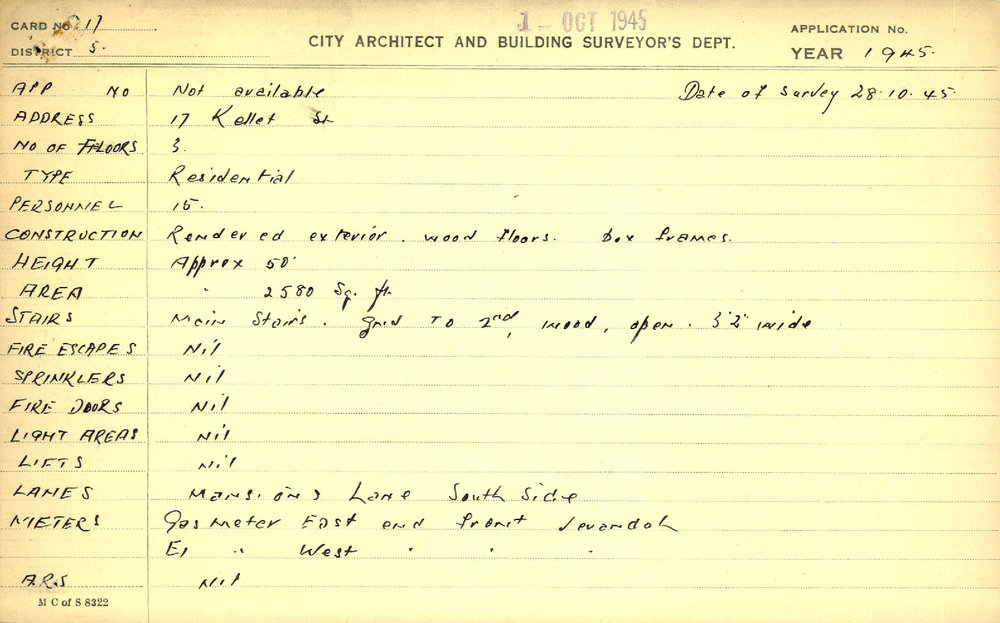 CARD No 17
1 - OCT 1945
APPLICATION No.
DISTRICT 5.
CITY ARCHITECT AND BUILDING SURVEYOR'S DEPT.
YEAR 1945.
APP NO Not available Date of survey 28.10.45.
ADDRESS 17 Kellet St
NO OF FLOORS 3.
TYPE Residential
PERSONNEL 15.
CONSTRUCTION Rendered exterior. wood floors. box frames.
HEIGHT Approx 50'
AREA " 2580 Sq. ft.
STAIRS Main Stairs. grnd TO 2nd, wood, open. 3'2" wide
FIRE ESCAPES Nil
SPRINKLERS Nil
FIRE DOORS Nil
LIGHT AREAS Nil
LIFTS Nil
LANES Mansions Lane South Side
METERS Gas meter East end front verandah
El " West " " "
A.R.S Nil
M C of S 8322